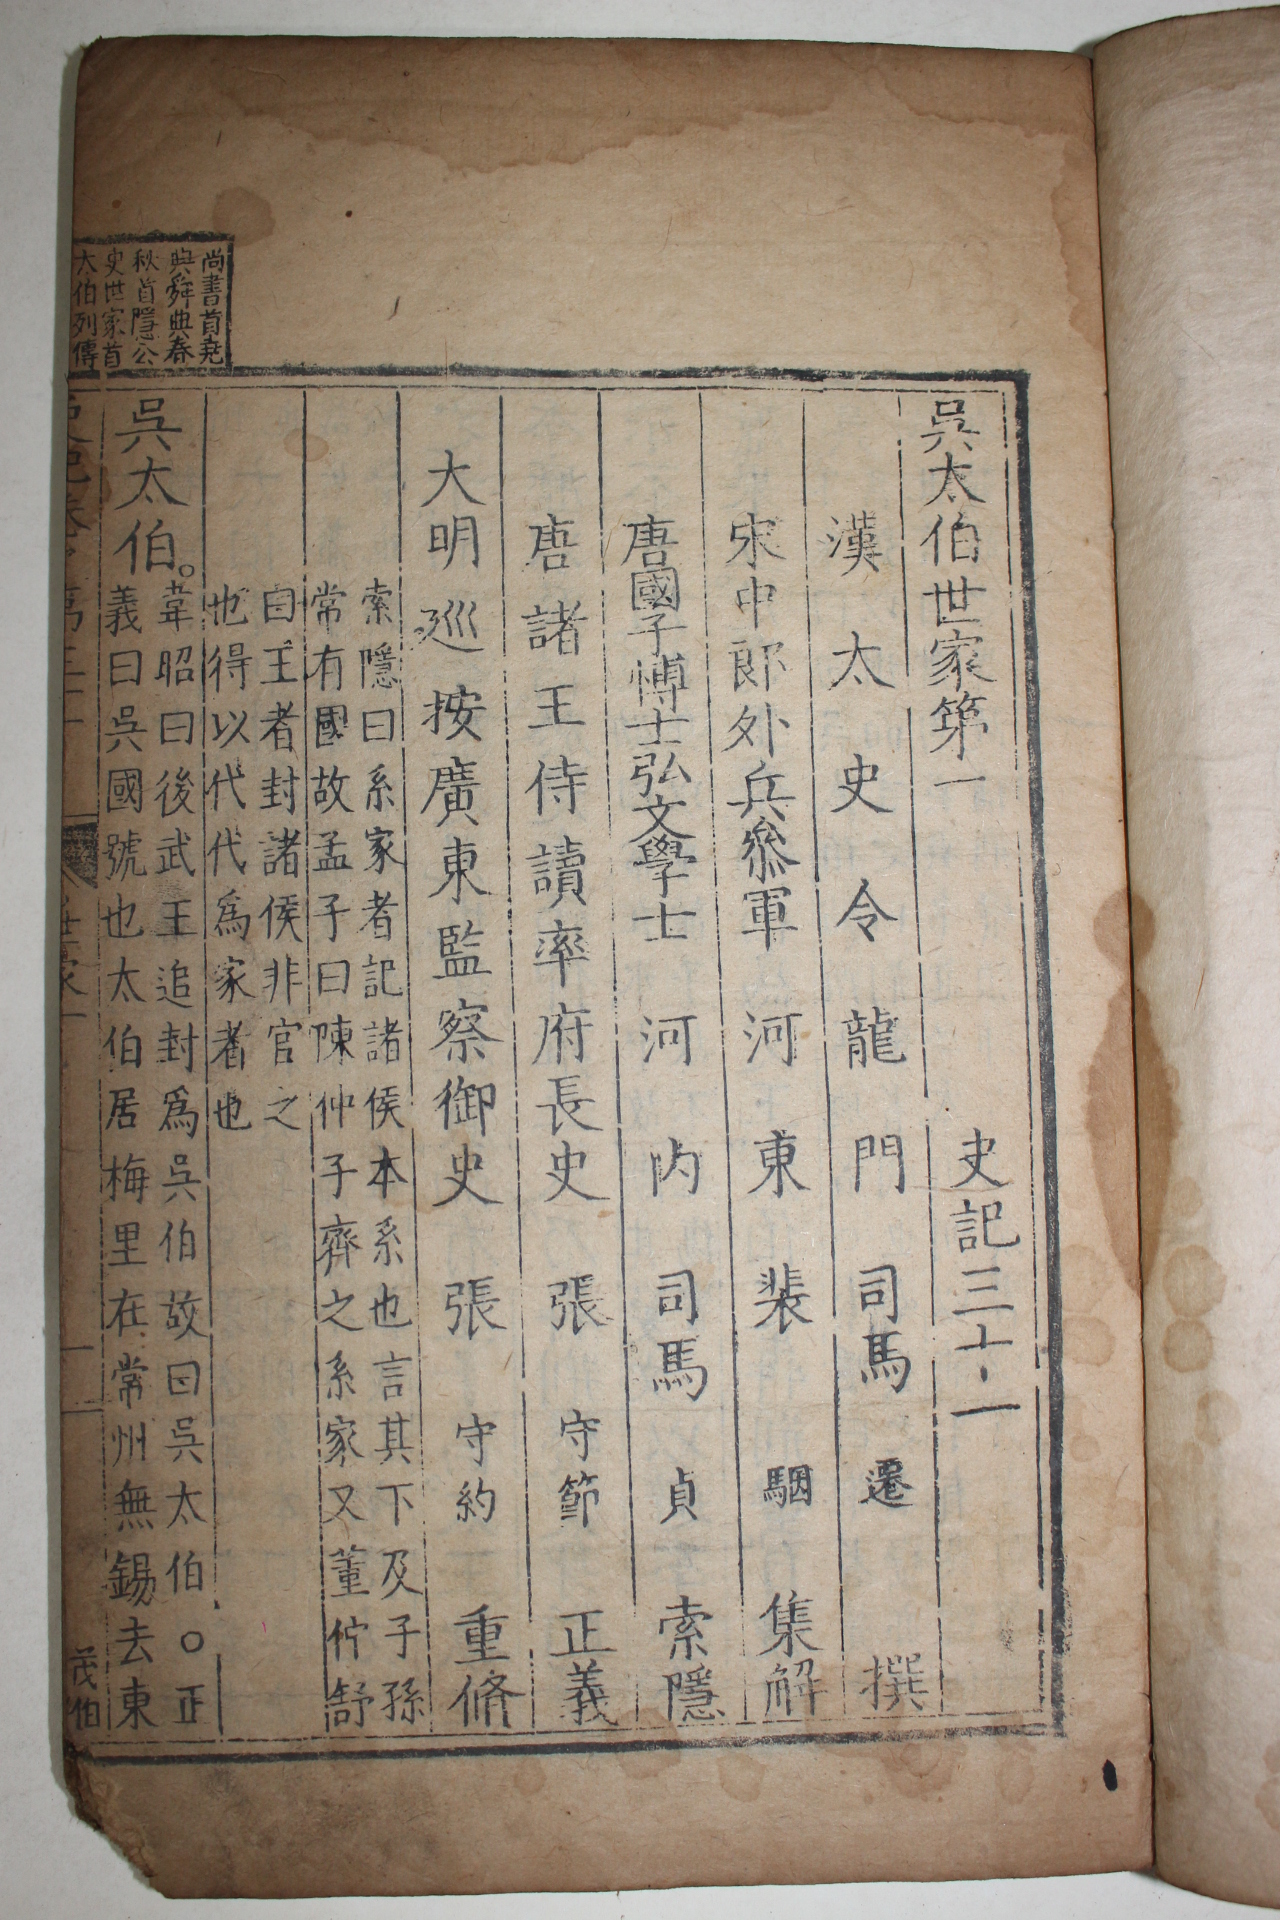 吳太伯世家第一 史記三十一
漢太史令龍門司馬遷撰
宋中郎外兵參軍河東裴駰集解
唐國子博士弘文學士河內司馬貞索隱
唐諸王侍讀率府長史張守節正義
大明巡按廣東監察御史張守約重脩
索隱曰系家者記諸侯本系也言其下及子孫
常有國故孟子曰陳仲子齊之系家又董仲舒
曰王者封諸侯非官之
也得以代代爲家者也
吳太伯。
韋昭曰後武王追封爲吳伯故曰吳太伯○正
義曰吳國號也太伯居梅里在常州無錫去東
尚書首堯
典舜典春
秋首隱公
史世家首
太伯列傳
茂伯